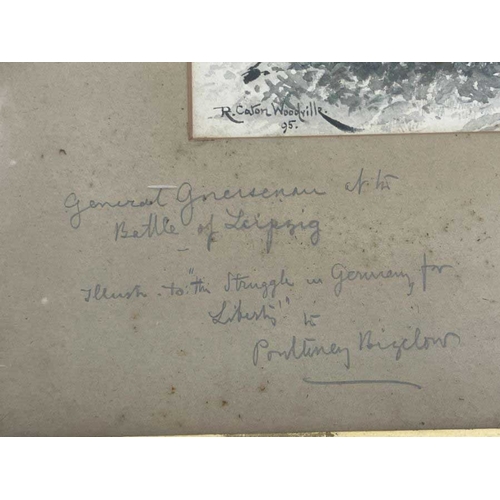 R. Caton Woodville.
95.
General Gneisenau at the
Battle of Leipzig
Illust. to "the Struggle in Germany for
Liberty" to
Poultney Bigelow